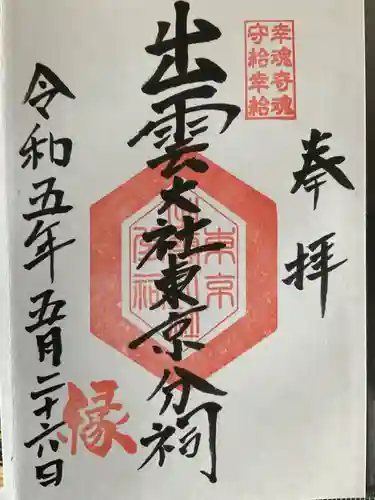 奉拝
幸魂奇魂
守給幸給
出雲大社東京分祠
令和五年五月二十六日
縁